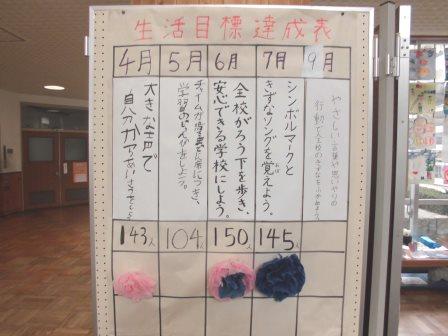 生活目標達成表
4月
5月
6月
7月
9月
大きな声で
自分からあいさつをしよう。
チャイムが鳴る前に席につき、
学習のじゅんびをしよう。
全校がろう下を歩き、
安心できる学校にしよう。
シンボルマークと
きずなソングを覚えよう。
やさしい言葉や思いやりの
行動で全校のきずなをふかめよう。
143人
104人
150人
145人